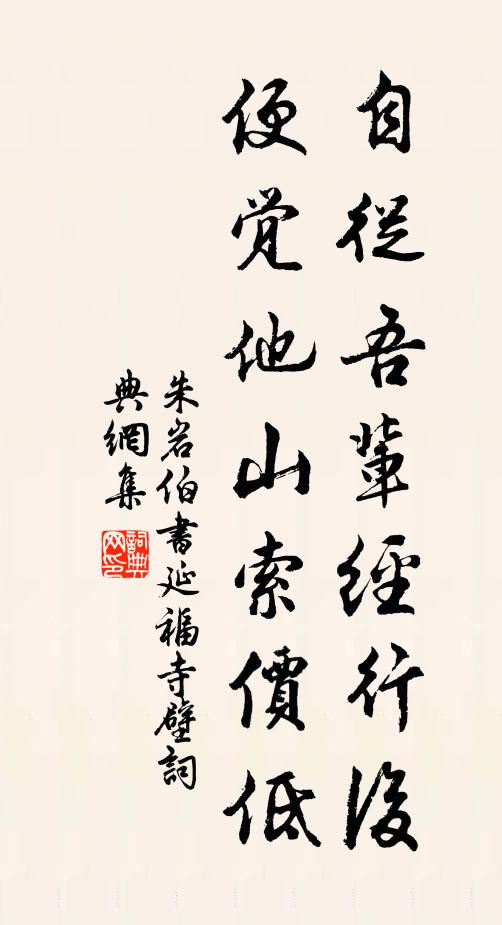 自從吾輩經行後
便覺他山索價低
朱岩伯書延福寺壁詞
典網集
詞典
网印